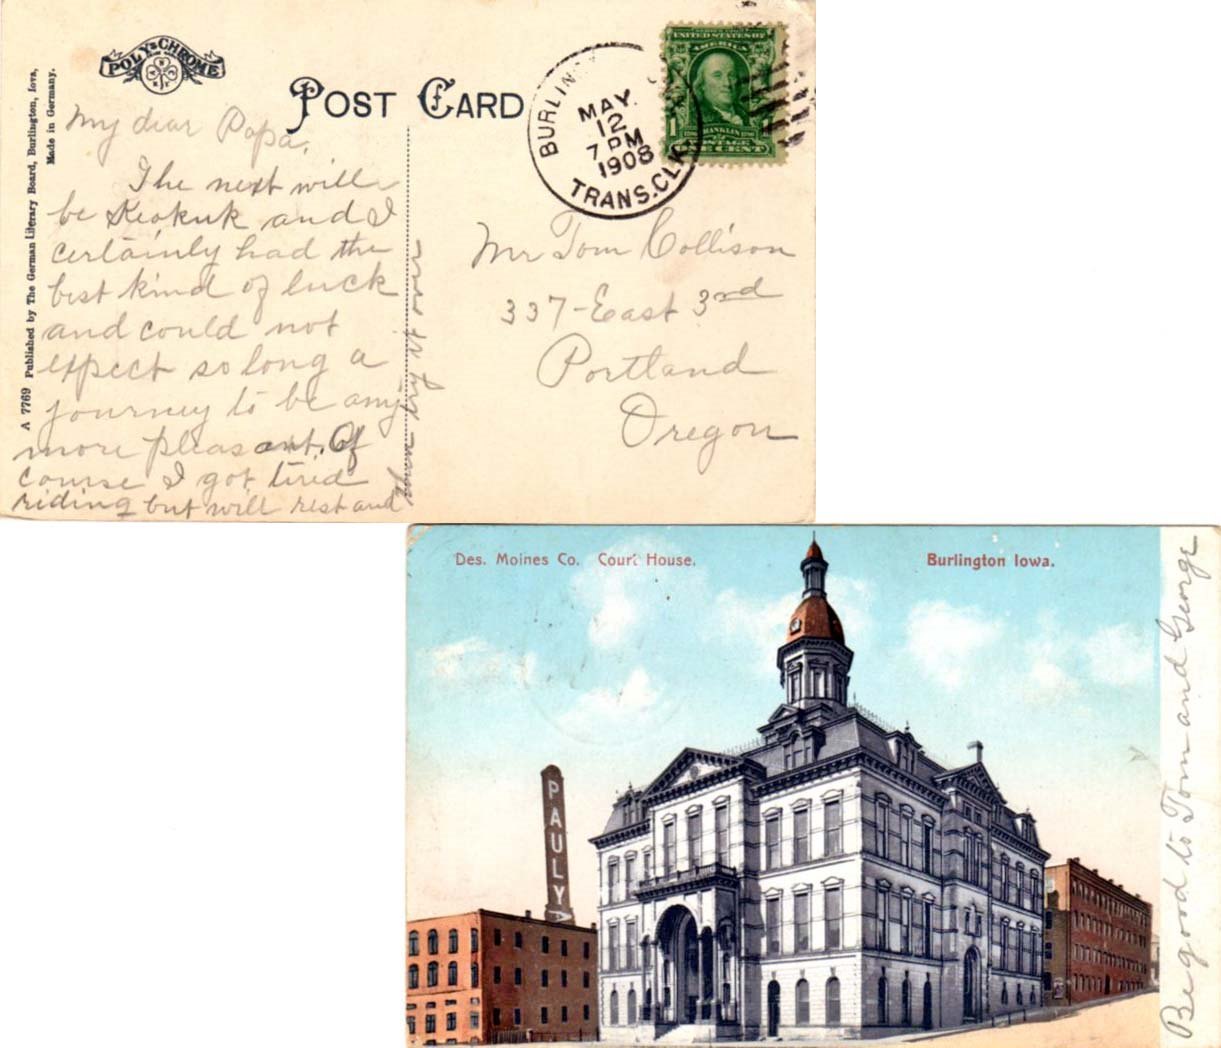 POLY-CHROME
POST CARD
BURLIN
MAY
12
7 PM
1908
TRANS.CLK
UNITED STATES OF
AMERICA
1 FRANKLIN 1
POSTAGE
ONE CENT
A 7769 Published by The German Literary Board, Burlington, Iowa,
Made in Germany.
My dear Papa,
The next will
be Keokuk and I
certainly had the
best kind of luck
and could not
expect so long a
journey to be any
more pleasant. Of
course I got tired
riding but will rest and
then try it over
Mr Tom Collison
337-East 3rd
Portland
Oregon
Des. Moines Co. Court House.
Burlington Iowa.
PAULY
Be good to Tom and George